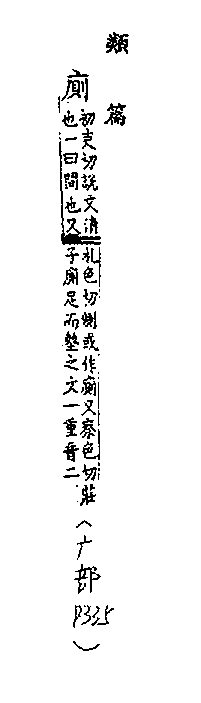 類篇
廁
初吏切說文清
也一曰間也又
礼色切惻或作廁又察色切莊
子廁足而墊之文一重音二
(广部 P335)